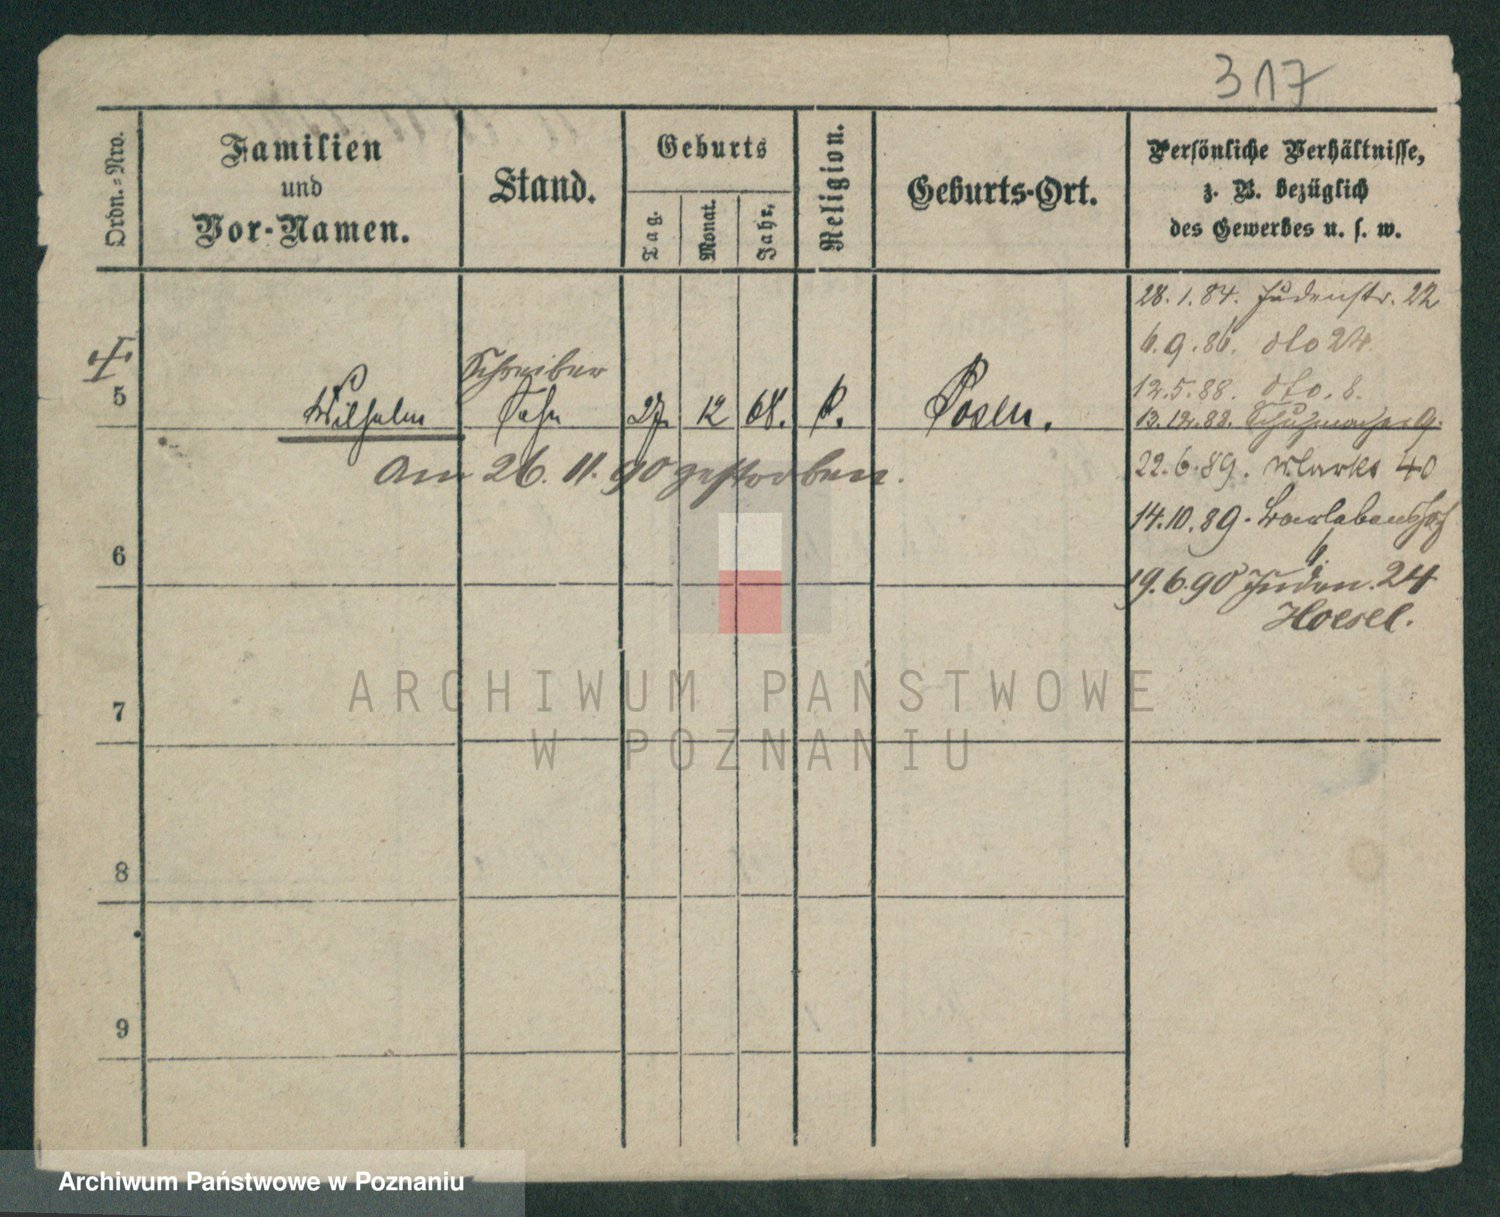 317
Ordn.-Nro.
Familien
und
Vor-Namen.
Stand.
Geburts
Tag.
Monat.
Jahr.
Religion.
Geburts-Ort.
Persönliche Verhältnisse,
z. B. bezüglich
des Gewerbes u. s. w.
28. 1. 84. Judenstr. 22
6. 9. 86. dto 24.
12. 5. 88. dto. 8.
13. 12. 88. Schuhmacher 9.
22. 6. 89. Markt 40
14. 10. 89.
19. 6. 90 Juden. 24
Hoesel.
Schreiber
5 Wilhelm Sohn 27. 12 68. Posen.
Am 26. 11. 90 gestorben.
6
7
8
9
ARCHIWUM PAŃSTWOWE
W POZNANIU
Archiwum Państwowe w Poznaniu